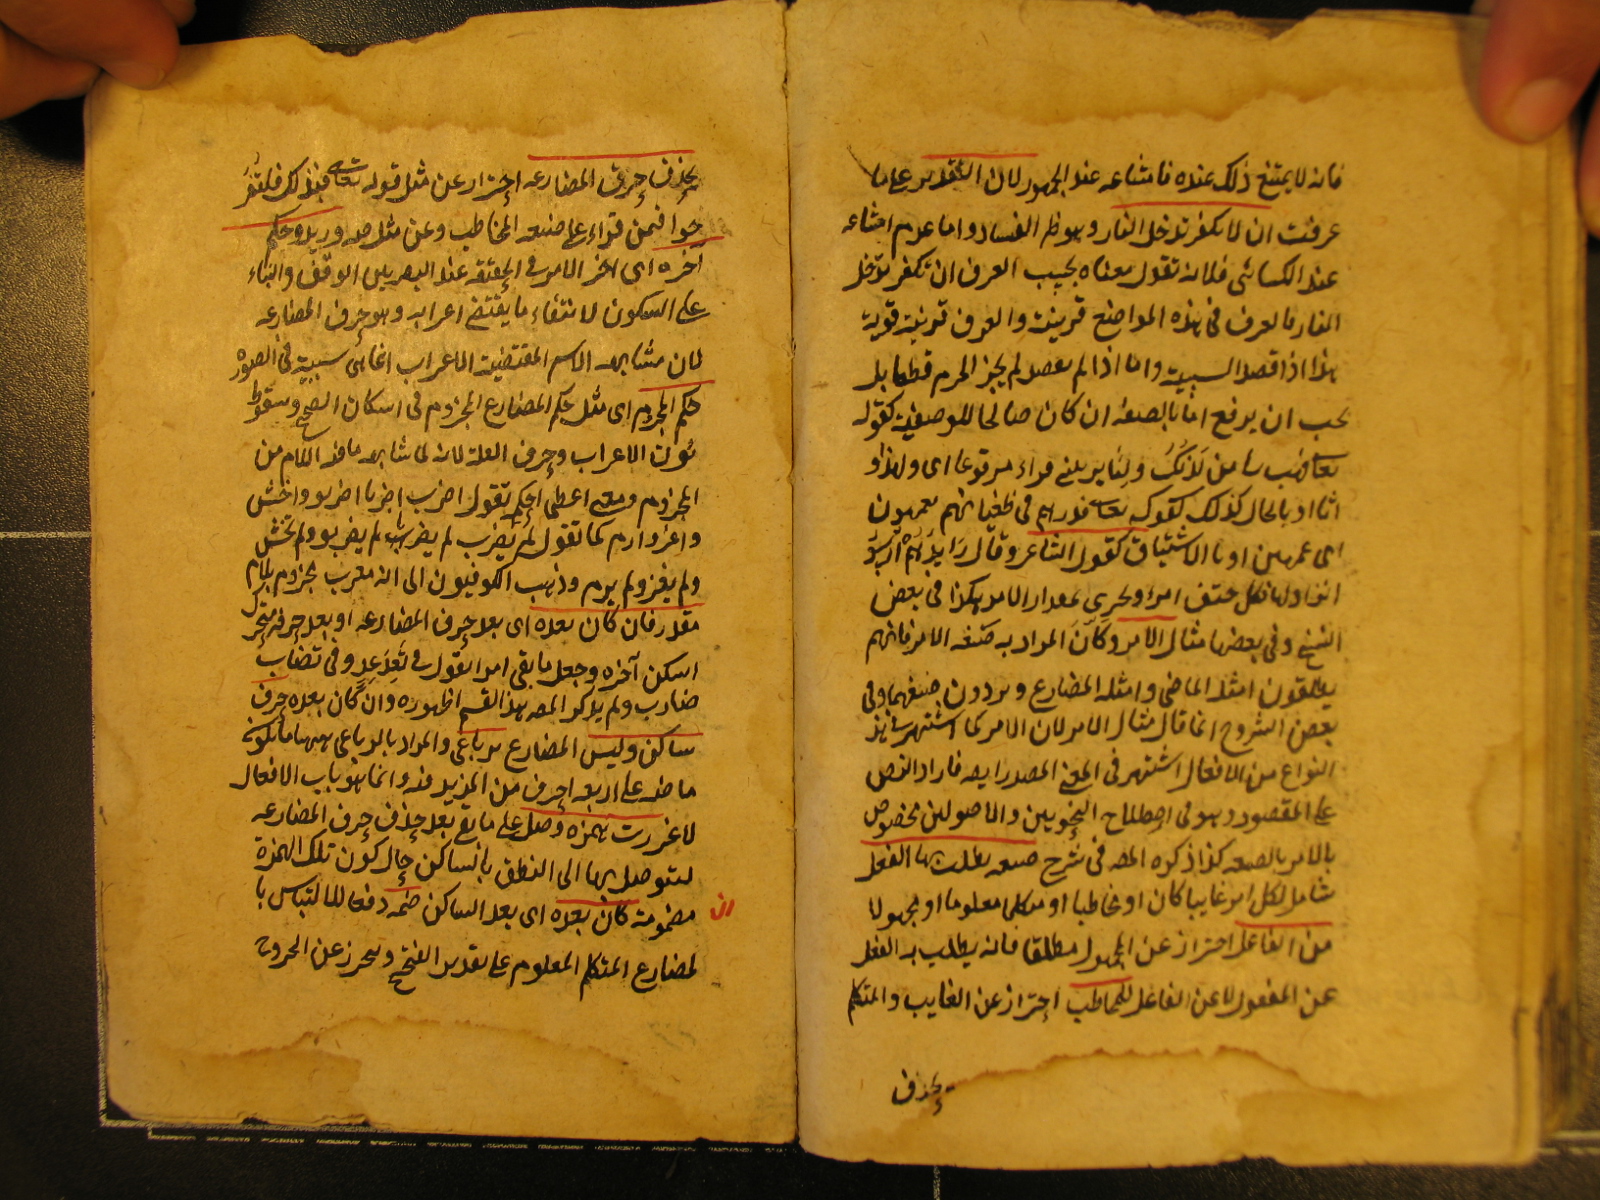 فانه لا يمتنع ذلك عنده فامتناعه عند الجمهور لان التقدير على ما
عرفت ان لا تكفر تدخل النار وهو ظ الفساد واما عدم امتناعه
عند الكسائى فلانه تقول معناه بحسب العرف ان تكفر تدخل
النار فالعرف فى هذه المواضع قرينة والعرف قرينة قوية
هذا اذا قصد السببية واما اذا لم يقصد لم يجز الجزم قطعا بل
يجب ان يرفع اما بالصفة ان كان صالحا للوصفية كقوله
تعالى فهب لى من لدنك وليا يرثنى فى قراءة مرفوعا اى وليا وارثا
او بالحال كذلك كقوله تعالى فذرهم فى طغيانهم يعمهون
اى عمهين او بالاستيناف كقول الشاعر وقال رائدهم ارسوا
نزاولها فكل حتف امرئ يجرى بمقدار الامر هكذا فى بعض
النسخ وفى بعضها مثال الامر وكأن المراد به صيغة الامر فانهم
يطلقون امثلة الماضى وامثلة المضارع ويريدون صيغهما وفى
بعض الشروح انما قال مثال الامر لان الامر كما اشتهر فى هذا
النوع من الافعال اشتهر فى المعنى المصدرى ايضا فاراد النص
على المقصود وهو فى اصطلاح النحويين والاصولين مخصوص
بالامر بالصيغة كذا ذكره المصنف فى شرح صيغة يطلب بها الفعل
شامل لكل امر غايبا كان او مخاطبا او متكلما معلوما او مجهولا
من الفاعل احتراز عن المجهول مطلقا فانه يطلب به الفعل
عن المفعول لا عن الفاعل المخاطب احتراز عن الغايب والمتكلم
بحذف
بحذف حرف المضارعة احتراز عن مثل قوله تعالى فبذلك فلتفر
حوا فيمن قراء على صيغة المخاطب وعن مثل صه ورويد وحكم
آخره اى اخر الامر فى الحقيقة عند البصريين الوقف والبناء
على السكون لانتفاء ما يقتضى اعرابه وهو حرف المضارعة
لان مشابهة الاسم المقتضية للاعراب انما هى سببية فى الصورة
حكم المجزوم اى مثل حكم المضارع المجزوم فى اسكان الصحيح وسقوط
نون الاعراب وحرف العلة لانه لما شابه ما فيه اللام من
المجزوم معنى اعطى حكمه تقول اضرب اضربا اضربوا واخش
واغز وارم كما تقول لم يضرب لم يضربا لم يضربوا ولم يخش
ولم يغز ولم يرم وذهب الكوفيون الى انه معرب مجزوم بلام
مقدر فان كان بعده اى بعد حرف المضارعة او بعد حرفه متحرك
اسكن آخره وجعل ما بقى امرا تقول فى تعد عد وفى تضارب
ضارب ولم يذكر المصنف هذا القسم لظهوره وان كان بعده حرف
ساكن وليس المضارع برباعى والمراد بالرباعى ههنا ما يكون
ماضيه على اربعة احرف من المزيد فيه وانما هو باب الافعال
لا غير زدت همزة وصل على ما بقى بعد حذف حرف المضارعة
ليتوصل بها الى النطق بالساكن حال كون تلك الهمزة
مضمومة ان كان بعده اى بعد الساكن ضمة دفعا للالتباس با
لمضارع المتكلم المعلوم على تقدير الفتح وتحرز عن الخروج